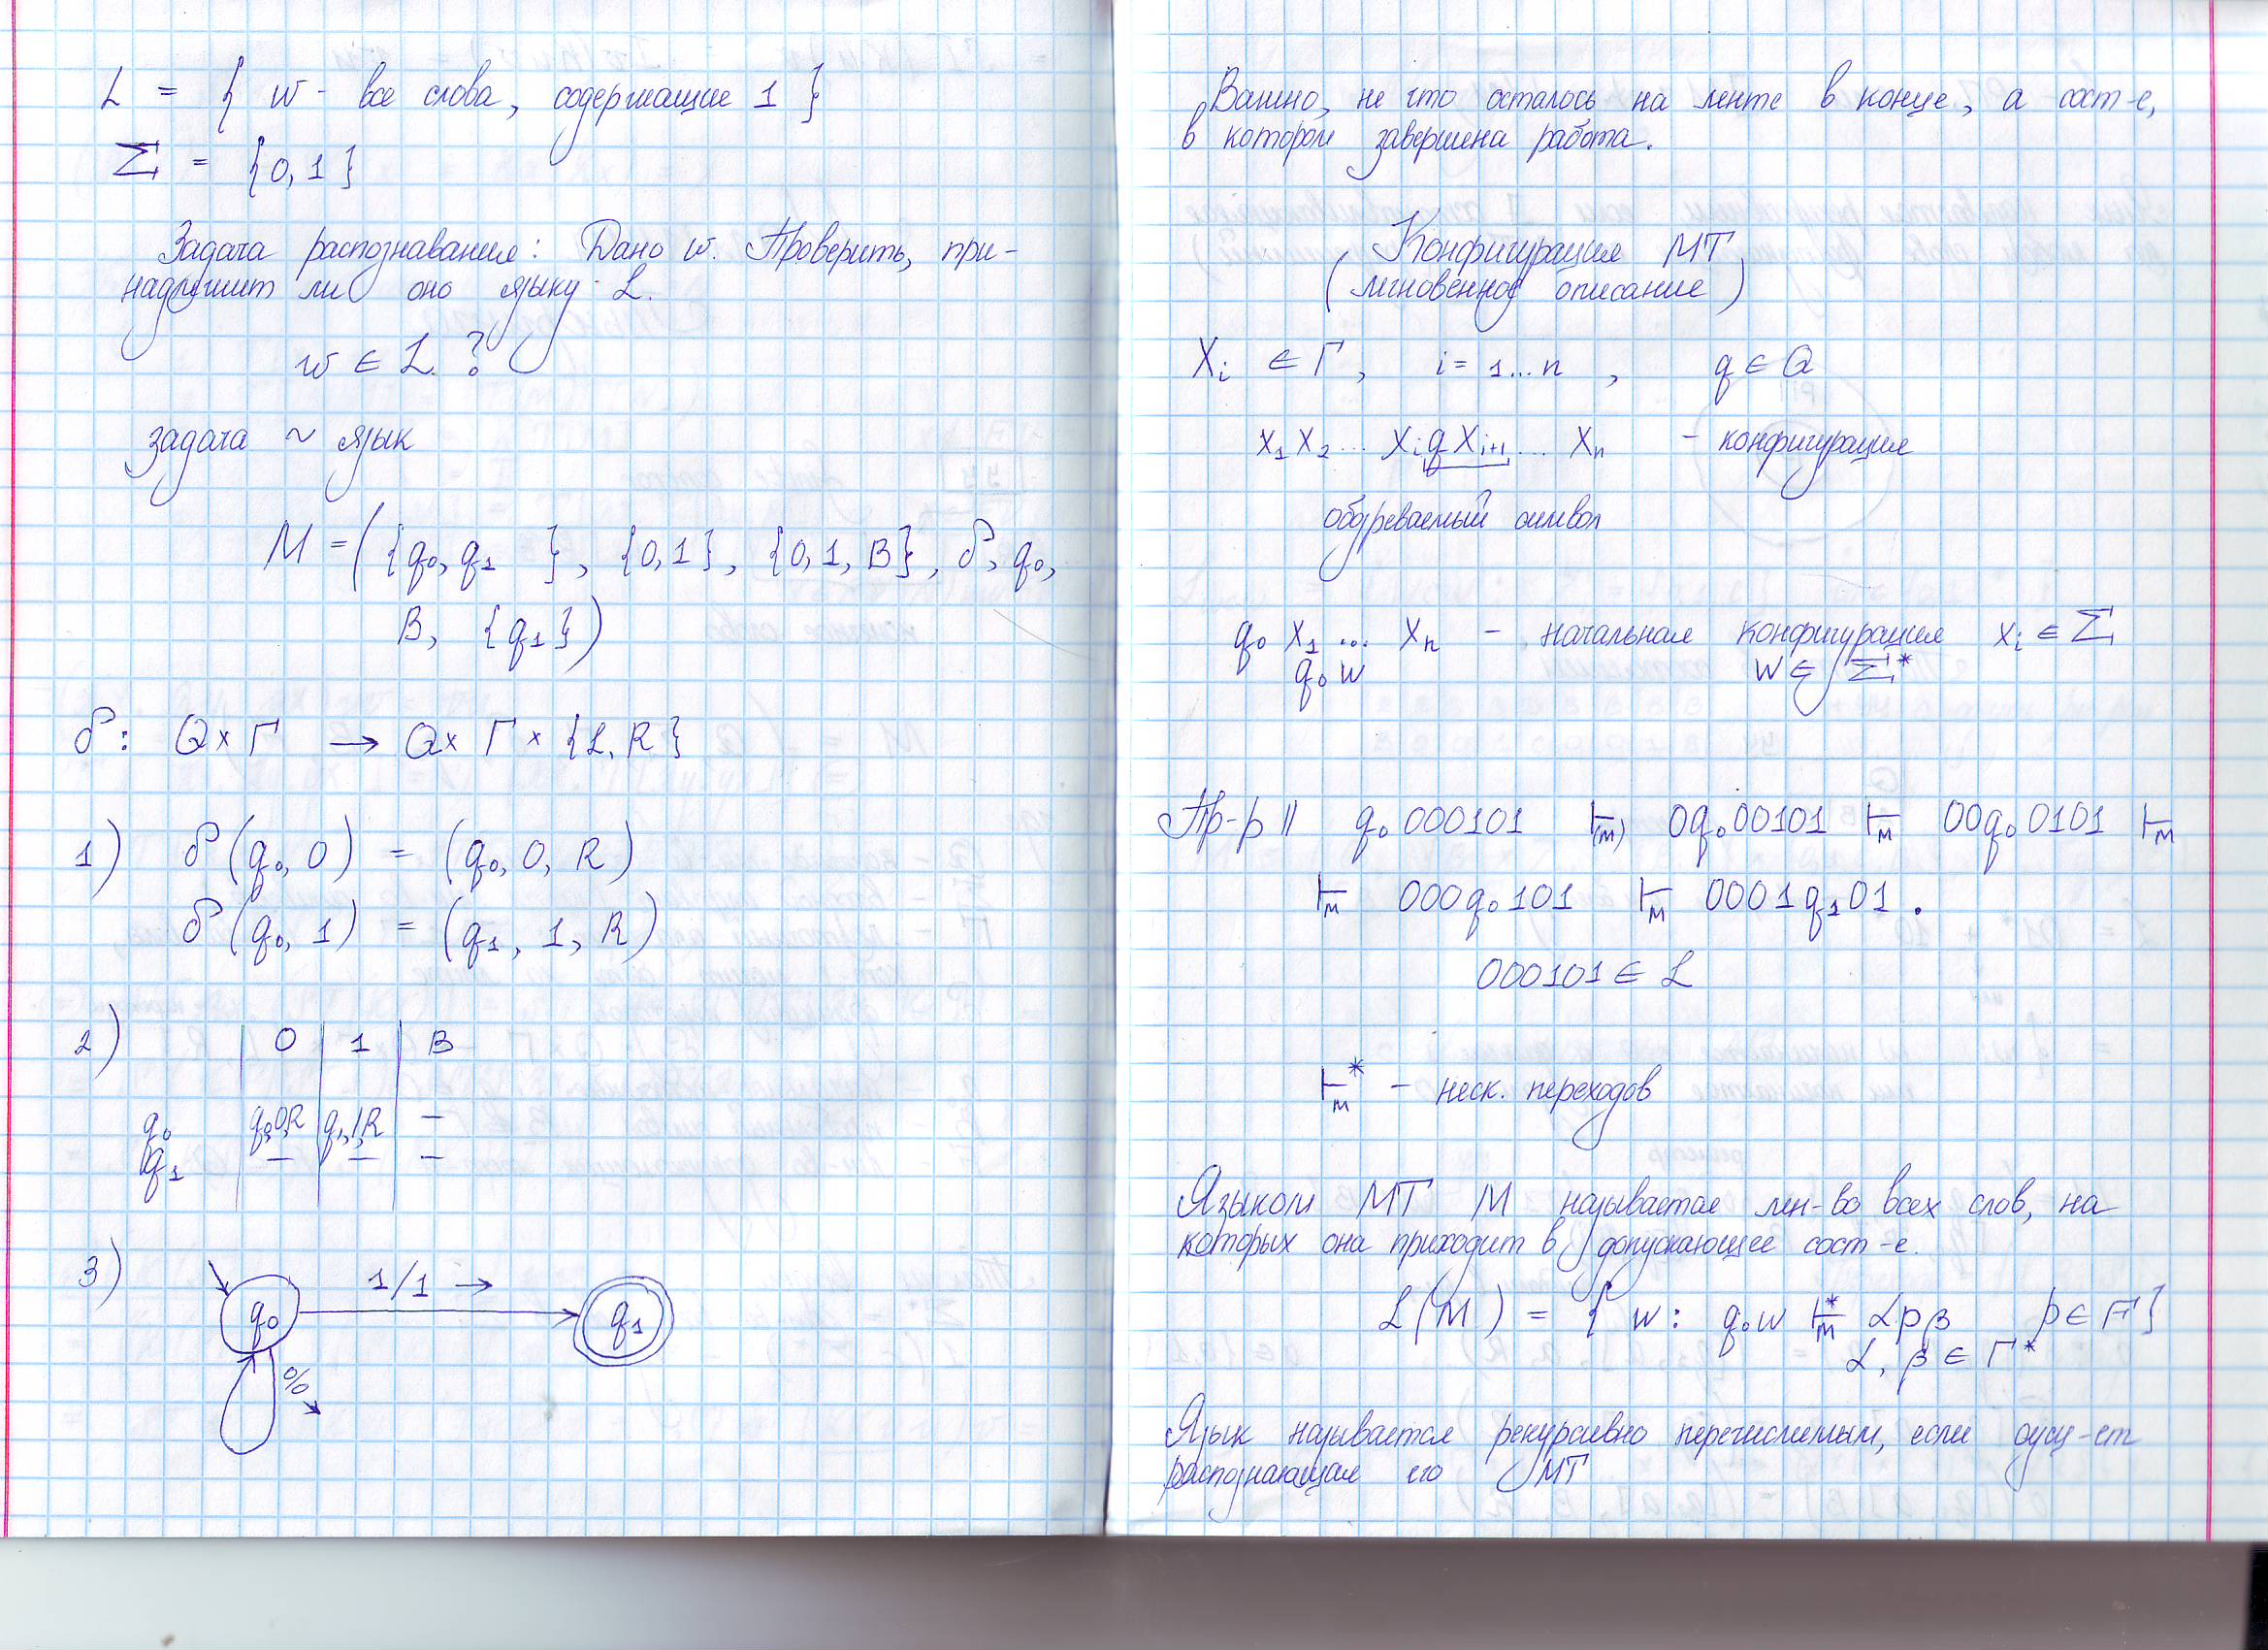 L = { w - все слова, содержащие 1 }
Σ = {0, 1}
Задача распознавания: Дано w. Проверить, при-
надлежит ли оно языку L.
w ∈ L ?
задача ~ язык
M = ({q₀, q₁ }, {0,1}, {0,1,B}, δ, q₀,
B, {q₁})
δ: Q×Γ → Q×Γ×{L,R}
1) δ(q₀, 0) = (q₀, 0, R)
δ(q₀, 1) = (q₁, 1, R)
2) 0 | 1 | B
q₀ q₀,0,R | q₁,1,R | –
q₁ – – –
3) q₀ 1/1 → q₁
0/0 →
Важно, не что осталось на ленте в конце, а сост-е,
в котором завершена работа.
Конфигурация МТ
(мгновенное описание)
Xᵢ ∈ Γ, i = 1...n, q ∈ Q
X₁X₂ ... XᵢqXᵢ₊₁ ... Xₙ - конфигурация
обозреваемый символ
q₀ X₁ ... Xₙ - начальная конфигурация xᵢ ∈ Σ
q₀w w ∈ Σ*
Пр-р || q₀000101 ⊢(M) 0q₀00101 ⊢M 00q₀0101 ⊢M
⊢M 000q₀101 ⊢M 0001q₁01.
000101 ∈ L
⊢*M - неск. переходов
Языком МТ M называется мн-во всех слов, на
которых она приходит в допускающее сост-е.
L(M) = { w: q₀w ⊢*M αpβ p∈F}
α, β ∈ Γ*
Язык называется рекурсивно перечислимым, если сущ-ет
распознающая его МТ